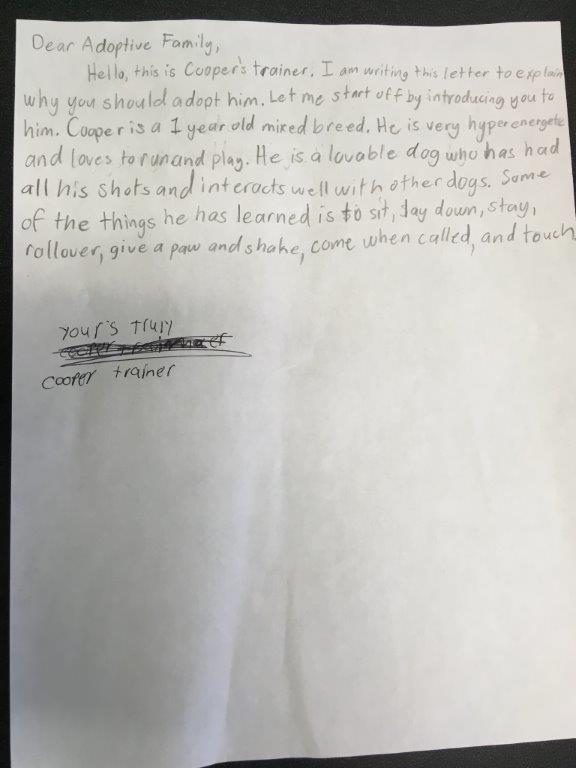 Dear Adoptive Family,
Hello, this is Cooper's trainer. I am writing this letter to explain
why you should adopt him. Let me start off by introducing you to
him. Cooper is a 1 year old mixed breed. He is very hyper energetic
and loves to run and play. He is a lovable dog who has had
all his shots and interacts well with other dogs. Some
of the things he has learned is to sit, lay down, stay,
rollover, give a paw and shake, come when called, and touch
your's truly
cooper trainer